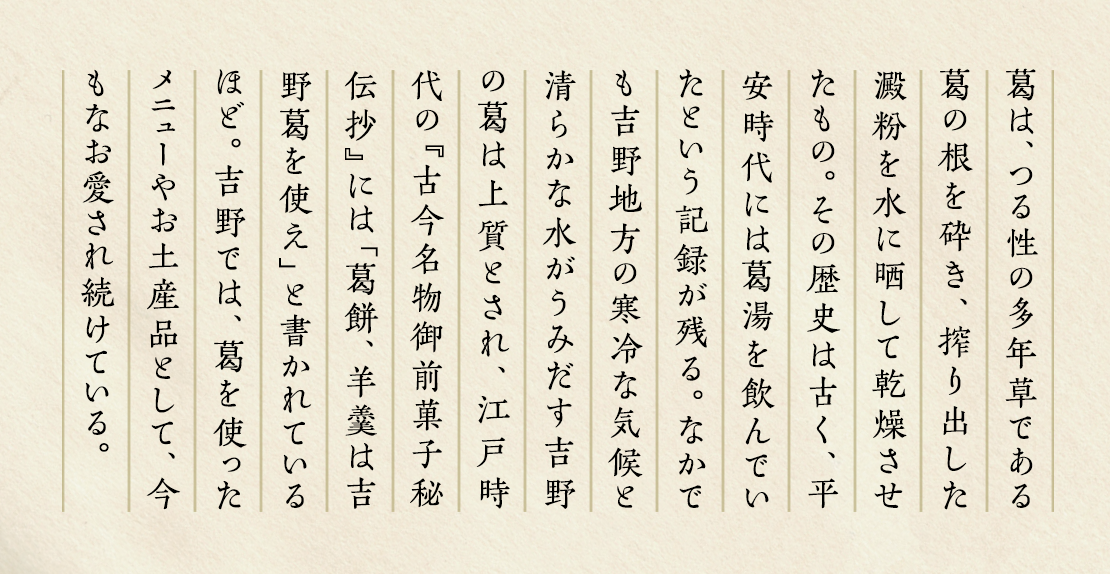 葛は、つる性の多年草である
葛の根を砕き、搾り出した
澱粉を水に晒して乾燥させ
たもの。その歴史は古く、平
安時代には葛湯を飲んでい
たという記録が残る。なかで
も吉野地方の寒冷な気候と
清らかな水がうみだす吉野
の葛は上質とされ、江戸時
代の『古今名物御前菓子秘
伝抄』には「葛餅、羊羹は吉
野葛を使え」と書かれている
ほど。吉野では、葛を使った
メニューやお土産品として、今
もなお愛され続けている。